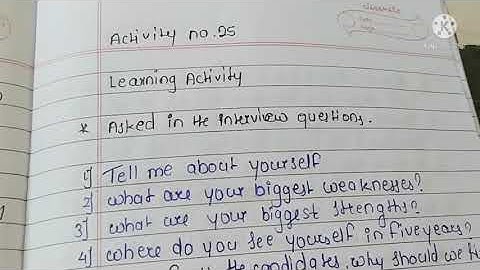 Activity no.25
Learning Activity
* Asked in the interview questions.
1) Tell me about yourself
2) what are your biggest weaknesses?
3) what are your biggest strengths?
4) where do you see yourself in five years?
the candidates, why should we